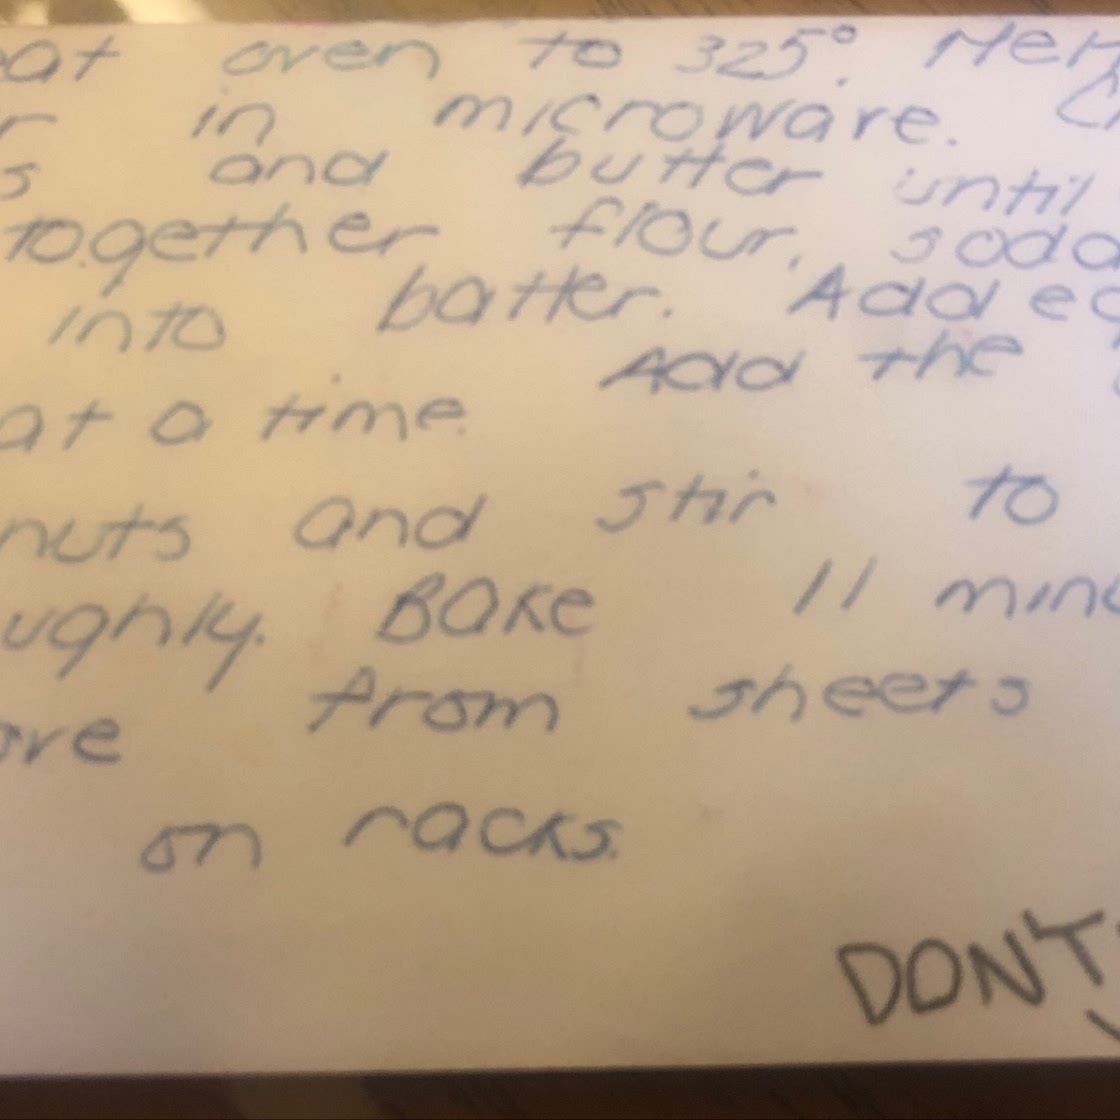 eat oven to 325°. Melt
r in microware.
s and butter until
together flour, soda
into batter. Add
Add the
at a time.
nuts and stir to
ughly. Bake 11 minu
ove from sheets
on racks.
DON'T